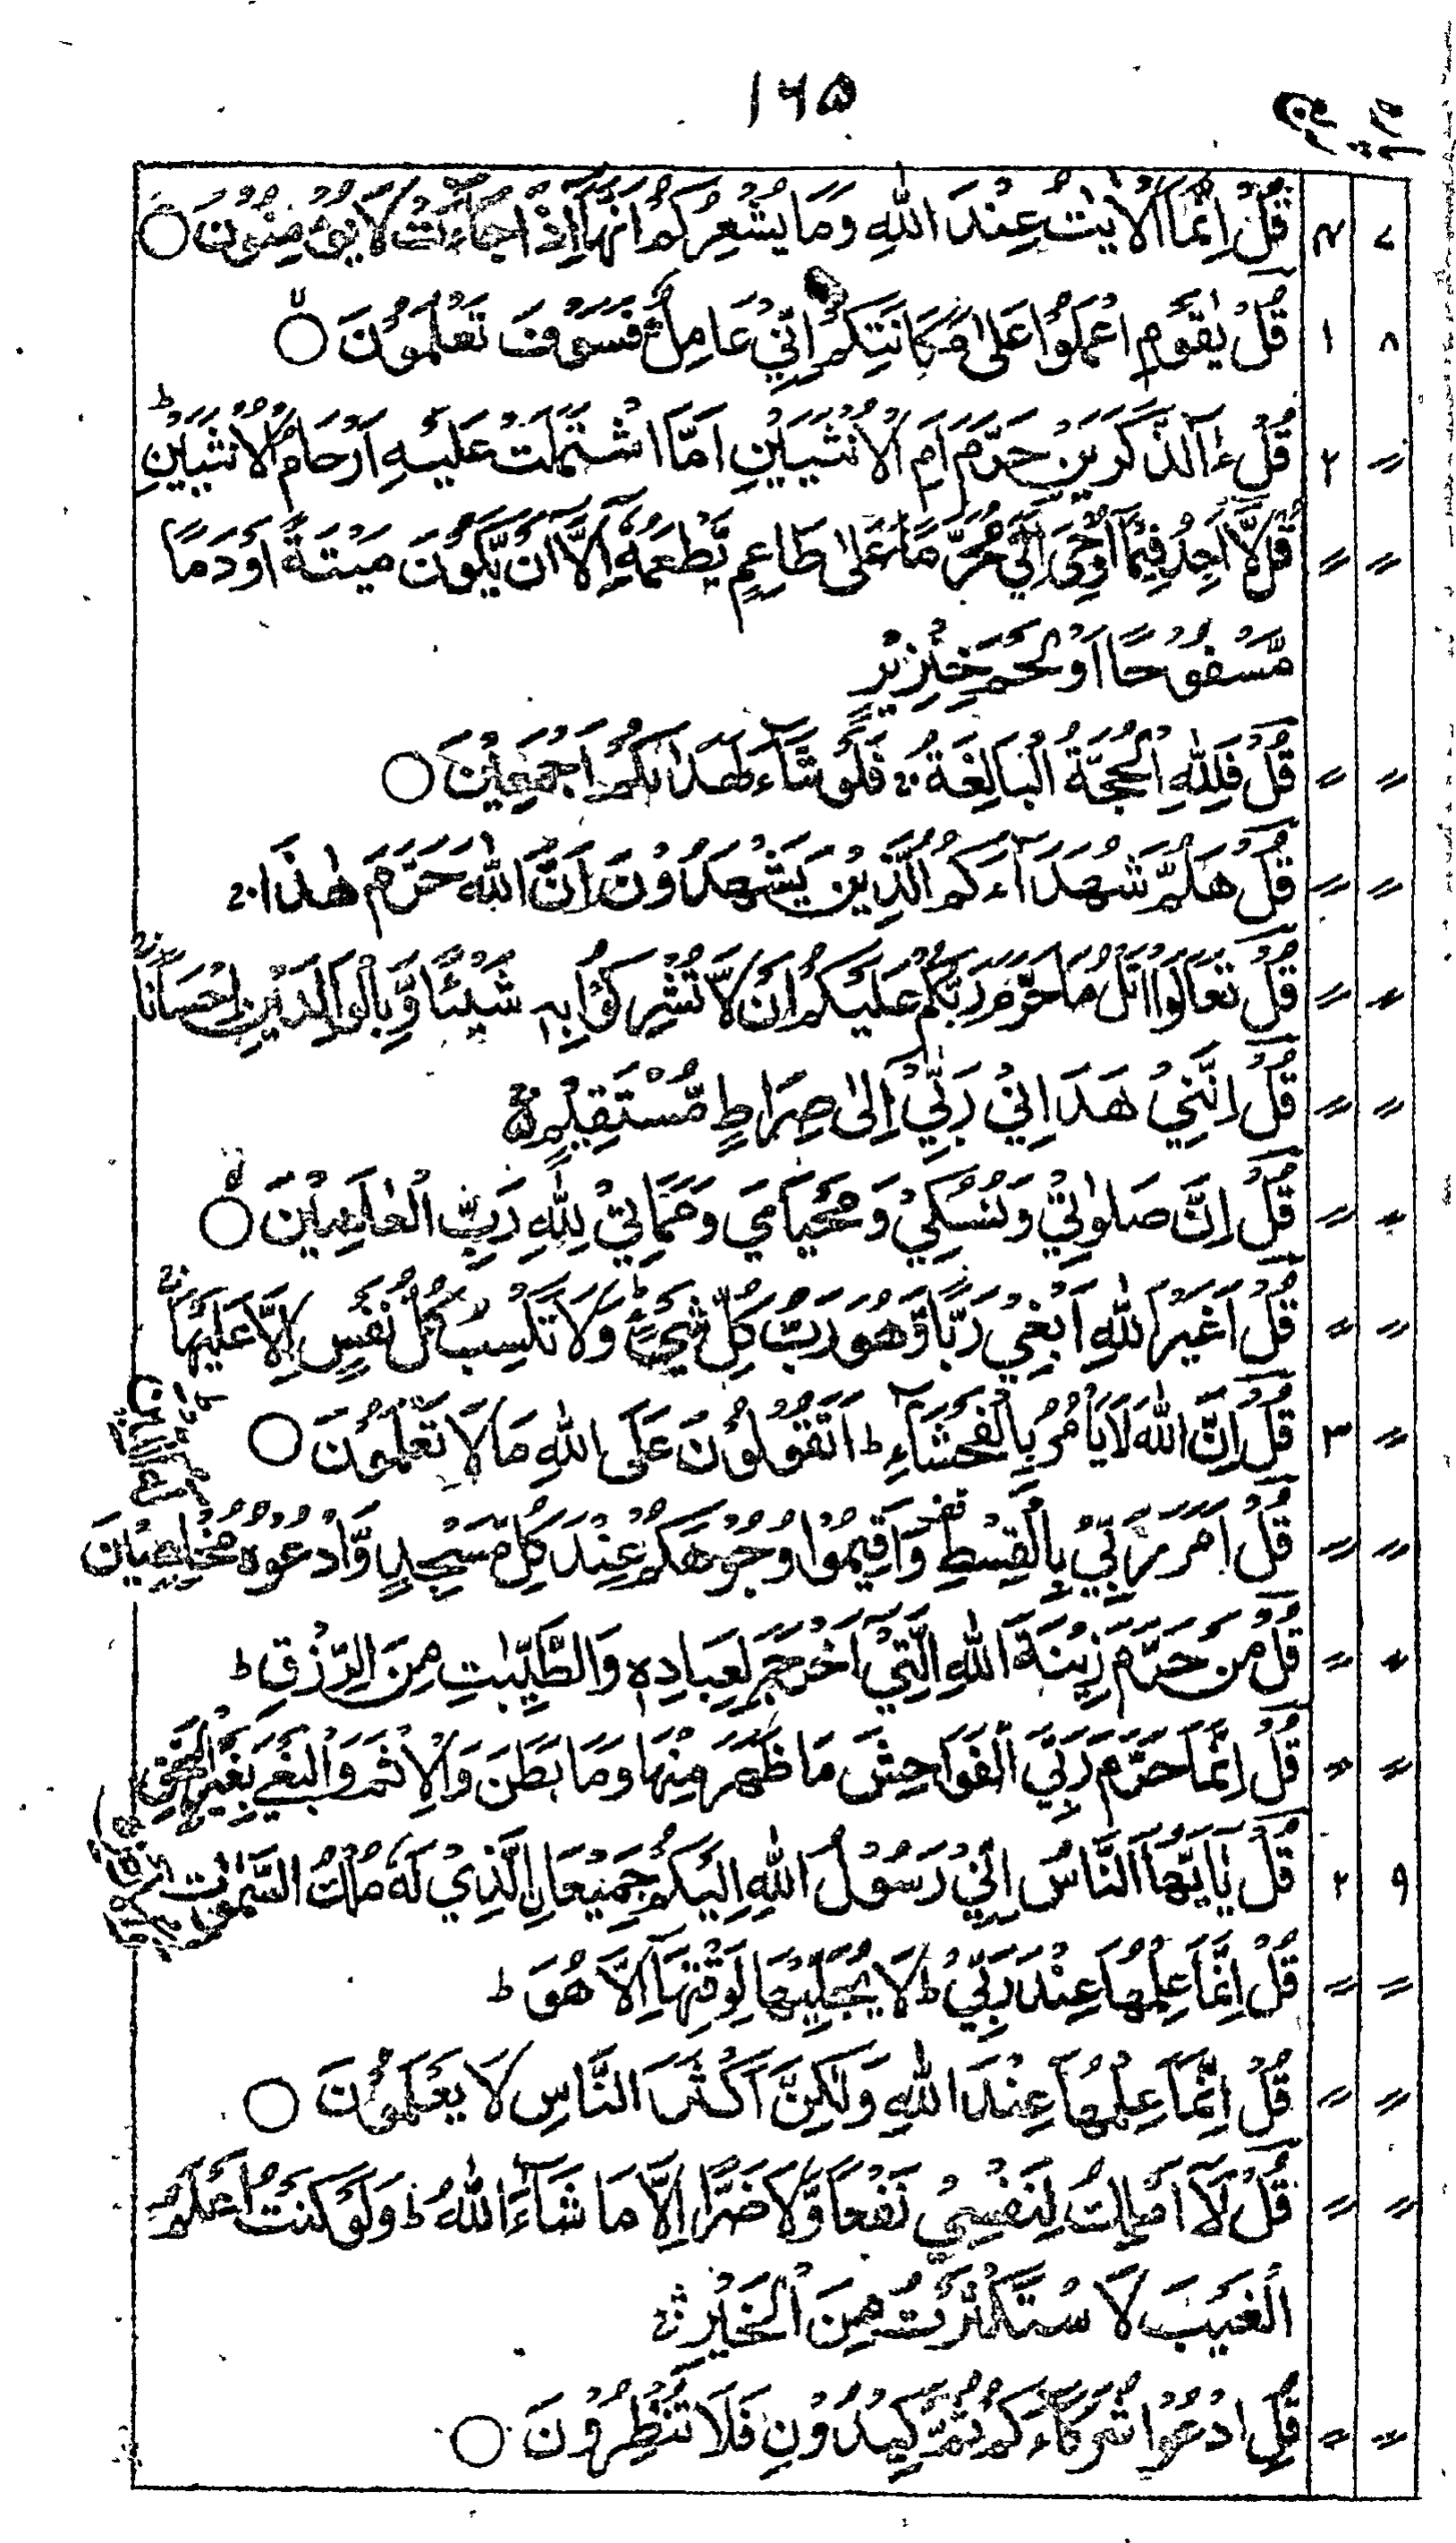 ۱۶۵
۷ ۴ قُلْ اِنَّمَا الْاٰيٰتُ عِنْدَ اللّٰهِ وَمَا يُشْعِرُكُمْ اَنَّهَا اِذَا جَآءَتْ لَا يُؤْمِنُوْنَ ○
۸ ۱ قُلْ يٰقَوْمِ اعْمَلُوْا عَلٰى مَكَانَتِكُمْ اِنِّيْ عَامِلٌ فَسَوْفَ تَعْلَمُوْنَ ○
〃 ۲ قُلْ ءٰٓالذَّكَرَيْنِ حَرَّمَ اَمِ الْاُنْثَيَيْنِ اَمَّا اشْتَمَلَتْ عَلَيْهِ اَرْحَامُ الْاُنْثَيَيْنِ ط
〃 〃 قُلْ لَّآ اَجِدُ فِيْمَآ اُوْحِيَ اِلَيَّ مُحَرَّمًا عَلٰى طَاعِمٍ يَّطْعَمُهٗٓ اِلَّآ اَنْ يَّكُوْنَ مَيْتَةً اَوْ دَمًا
مَّسْفُوْحًا اَوْ لَحْمَ خِنْزِيْرٍ
〃 〃 قُلْ فَلِلّٰهِ الْحُجَّةُ الْبَالِغَةُ ج فَلَوْ شَآءَ لَهَدٰىكُمْ اَجْمَعِيْنَ ○
〃 〃 قُلْ هَلُمَّ شُهَدَآءَكُمُ الَّذِيْنَ يَشْهَدُوْنَ اَنَّ اللّٰهَ حَرَّمَ هٰذَا ج
〃 〃 قُلْ تَعَالَوْا اَتْلُ مَا حَرَّمَ رَبُّكُمْ عَلَيْكُمْ اَنْ لَّا تُشْرِكُوْا بِهٖ شَيْئًا وَّبِالْوَالِدَيْنِ اِحْسَانًا ج
〃 〃 قُلْ اِنَّنِيْ هَدَانِيْ رَبِّيْٓ اِلٰى صِرَاطٍ مُّسْتَقِيْمٍ ۵ج
〃 〃 قُلْ اِنَّ صَلَوٰتِيْ وَنُسُكِيْ وَمَحْيَايَ وَمَمَاتِيْ لِلّٰهِ رَبِّ الْعٰلَمِيْنَ ○
〃 〃 قُلْ اَغَيْرَ اللّٰهِ اَبْغِيْ رَبًّا وَّهُوَ رَبُّ كُلِّ شَيْءٍ ط وَلَا تَكْسِبُ كُلُّ نَفْسٍ اِلَّا عَلَيْهَا ج
〃 ۳ قُلْ اِنَّ اللّٰهَ لَا يَاْمُرُ بِالْفَحْشَآءِ ط اَتَقُوْلُوْنَ عَلَى اللّٰهِ مَا لَا تَعْلَمُوْنَ ○
〃 〃 قُلْ اَمَرَ رَبِّيْ بِالْقِسْطِ وَاَقِيْمُوْا وُجُوْهَكُمْ عِنْدَ كُلِّ مَسْجِدٍ وَّادْعُوْهُ مُخْلِصِيْنَ
〃 〃 قُلْ مَنْ حَرَّمَ زِيْنَةَ اللّٰهِ الَّتِيْٓ اَخْرَجَ لِعِبَادِهٖ وَالطَّيِّبٰتِ مِنَ الرِّزْقِ ط
〃 〃 قُلْ اِنَّمَا حَرَّمَ رَبِّيَ الْفَوَاحِشَ مَا ظَهَرَ مِنْهَا وَمَا بَطَنَ وَالْاِثْمَ وَالْبَغْيَ بِغَيْرِ الْحَقِّ
۹ ۲ قُلْ يٰٓاَيُّهَا النَّاسُ اِنِّيْ رَسُوْلُ اللّٰهِ اِلَيْكُمْ جَمِيْعَا نِ الَّذِيْ لَهٗ مُلْكُ السَّمٰوٰتِ
〃 〃 قُلْ اِنَّمَا عِلْمُهَا عِنْدَ رَبِّيْ ط لَا يُجَلِّيْهَا لِوَقْتِهَآ اِلَّا هُوَ ط
〃 〃 قُلْ اِنَّمَا عِلْمُهَا عِنْدَ اللّٰهِ وَلٰكِنَّ اَكْثَرَ النَّاسِ لَا يَعْلَمُوْنَ ○
〃 〃 قُلْ لَّآ اَمْلِكُ لِنَفْسِيْ نَفْعًا وَّلَا ضَرًّا اِلَّا مَا شَآءَ اللّٰهُ ط وَلَوْ كُنْتُ اَعْلَمُ
الْغَيْبَ لَاسْتَكْثَرْتُ مِنَ الْخَيْرِ ج
〃 〃 قُلِ ادْعُوْا شُرَكَآءَكُمْ ثُمَّ كِيْدُوْنِ فَلَا تُنْظِرُوْنَ ○